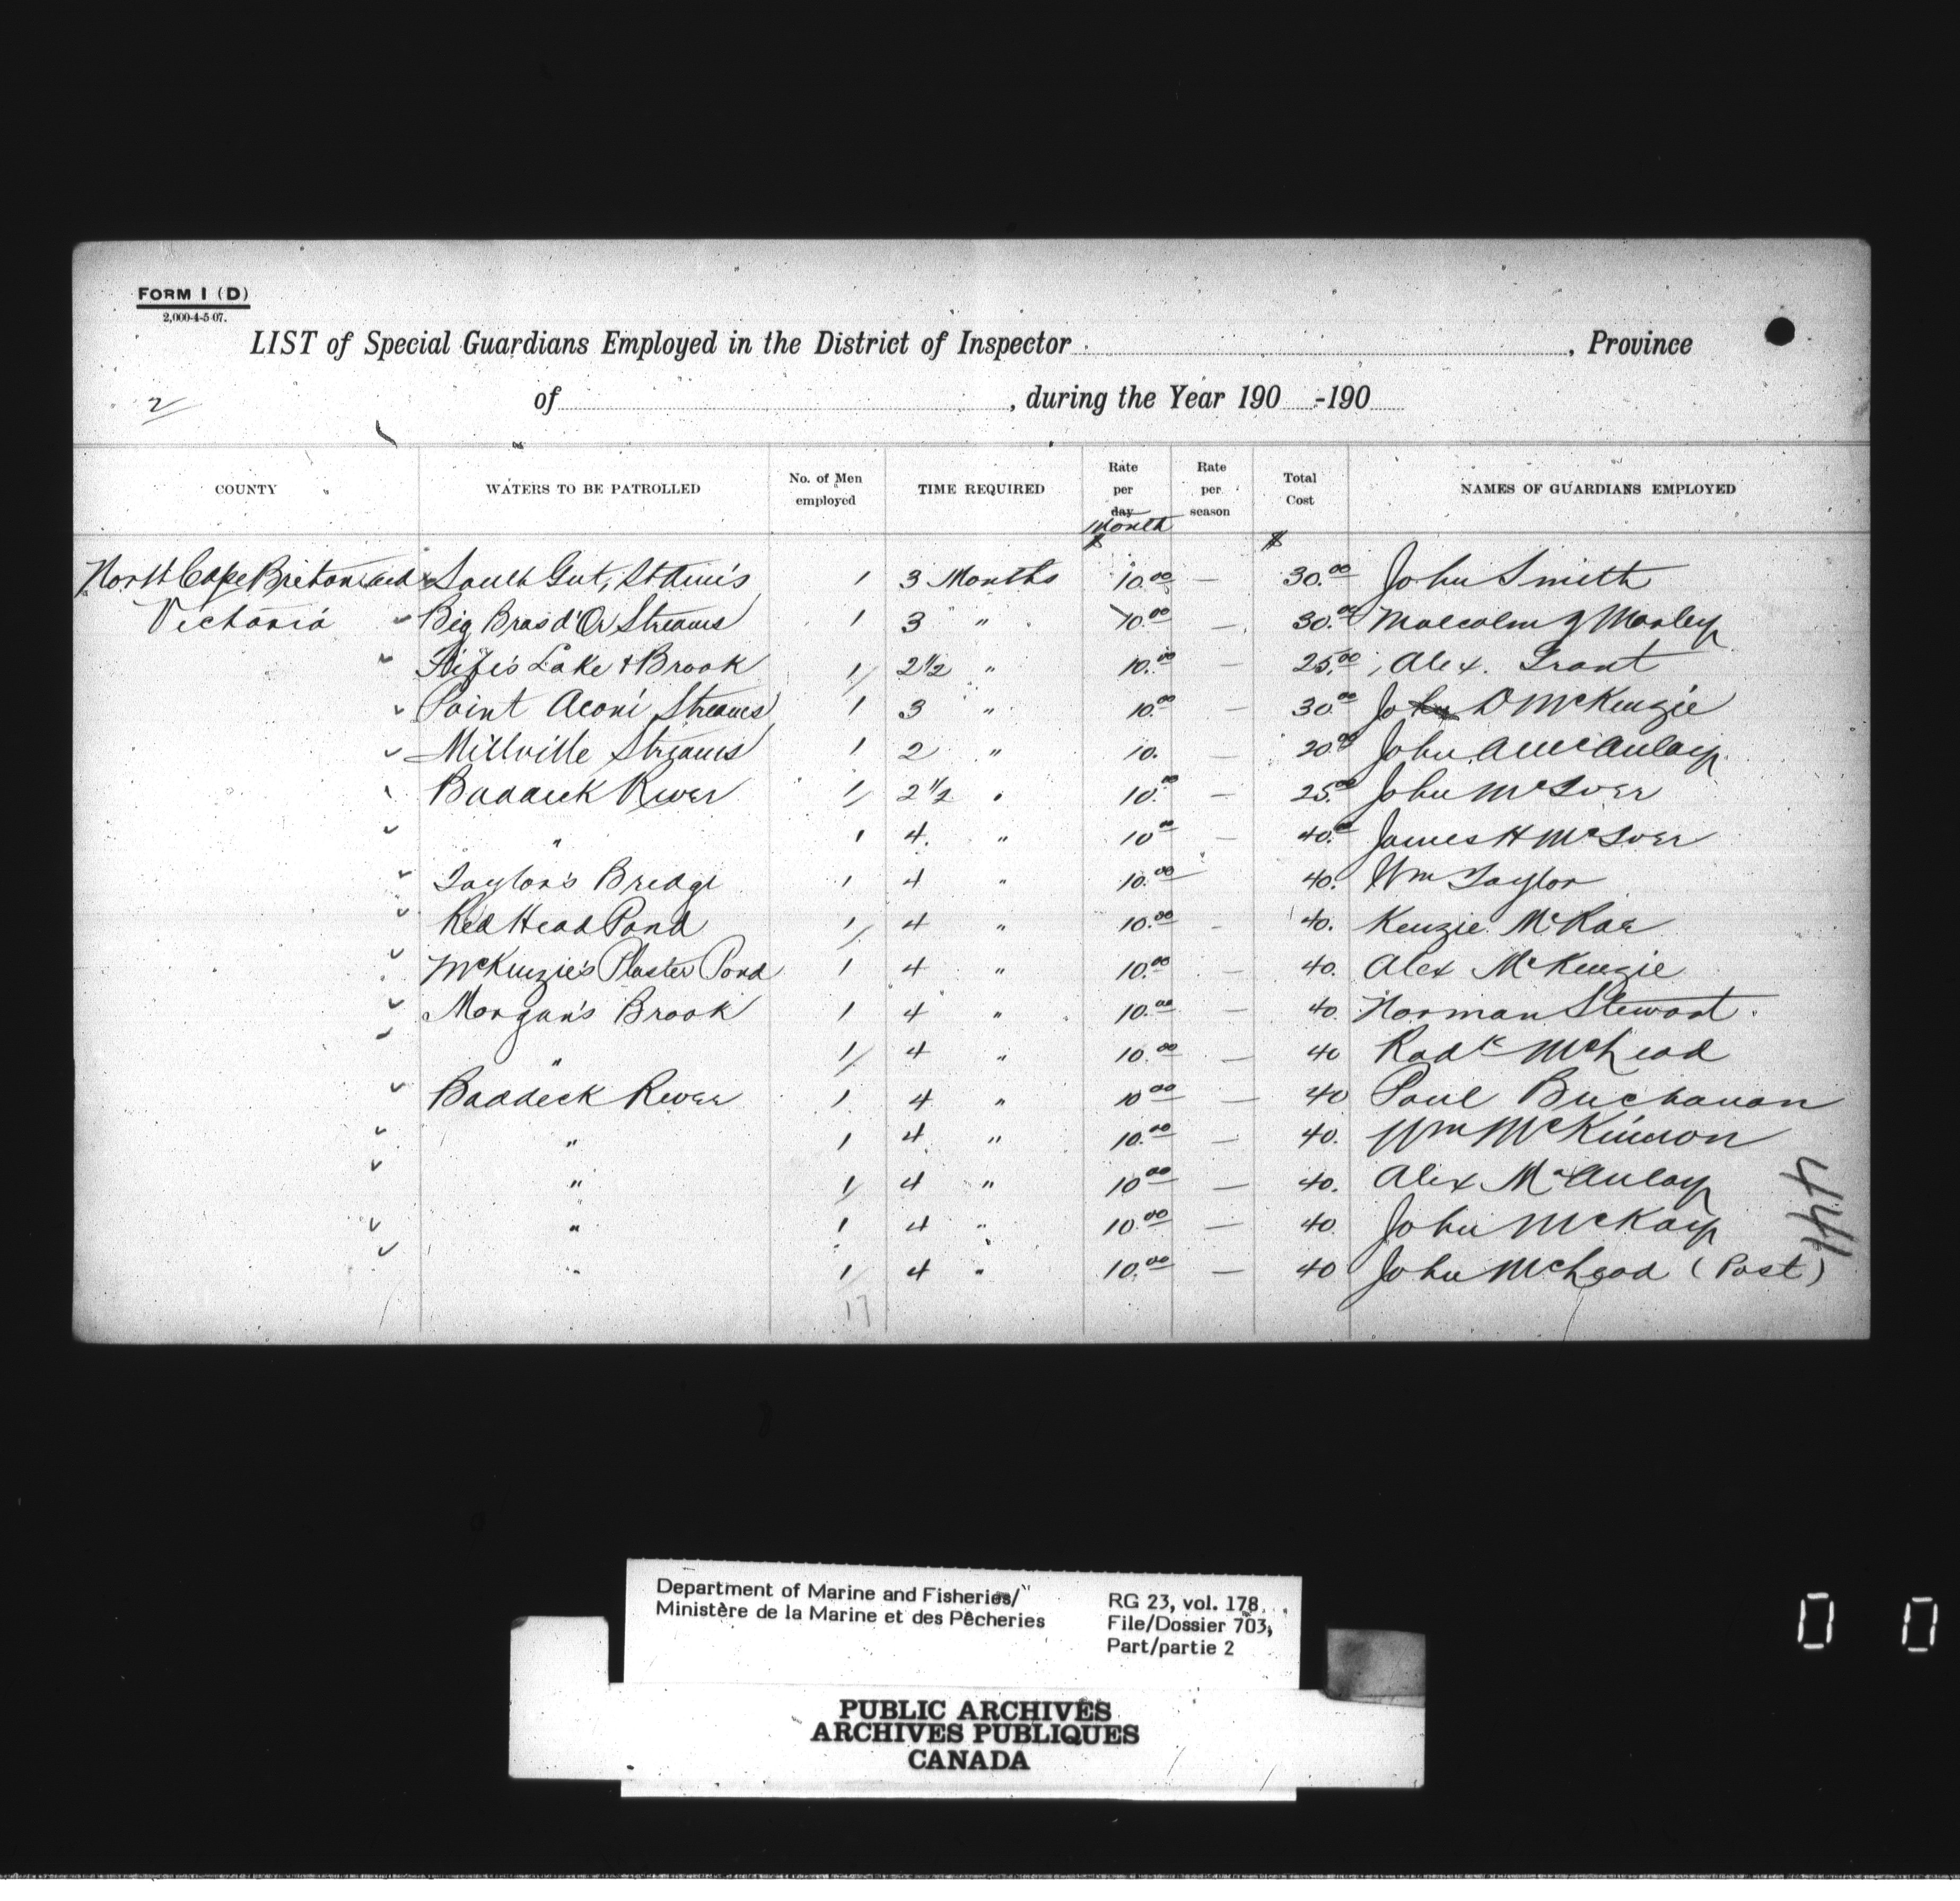 FORM 1 (D)
2,000-4-5-07.
LIST of Special Guardians Employed in the District of Inspector , Province
2 of , during the Year 190 -190
COUNTY WATERS TO BE PATROLLED No. of Men employed TIME REQUIRED Rate per day Month Rate per season Total Cost NAMES OF GUARDIANS EMPLOYED
$ $
North Cape Breton and South Gut, St Ann's 1 3 Months 10.00 — 30.00 John Smith
Victoria Big Bras d'Or Streams 1 3 " 10.00 — 30.00 Malcolm J Morley
Fife's Lake & Brook 1 2 1/2 " 10.00 — 25.00 Alex. Grant
Point Aconi Streams 1 3 " 10.00 — 30.00 John D McKenzie
Millville Streams 1 2 " 10. — 20.00 John A McAulay
Baddeck River 1 2 1/2 " 10.00 — 25.00 John McIver
" 1 4. " 10.00 — 40.00 James H McIver
Taylor's Bridge 1 4 " 10.00 — 40. Wm Taylor
Red Head Pond 1 4 " 10.00 - 40. Kenzie McRae
McKenzie's Plaster Pond 1 4 " 10.00 — 40. Alex McKenzie
Morgan's Brook 1 4 " 10.00 — 40. Norman Stewart.
" 1 4 " 10.00 — 40 Rodk McLeod
Baddeck River 1 4 " 10.00 — 40 Paul Buchanan
" 1 4 " 10.00 — 40. Wm McKinnon
" 1 4 " 10.00 — 40. Alex McAulay
" 1 4 " 10.00 — 40. John McKay
" 1 4 " 10.00 — 40 John McLeod (Post)
17
441
Department of Marine and Fisheries/
Ministère de la Marine et des Pêcheries
RG 23, vol. 178,
File/Dossier 703,
Part/partie 2
PUBLIC ARCHIVES
ARCHIVES PUBLIQUES
CANADA
0 0